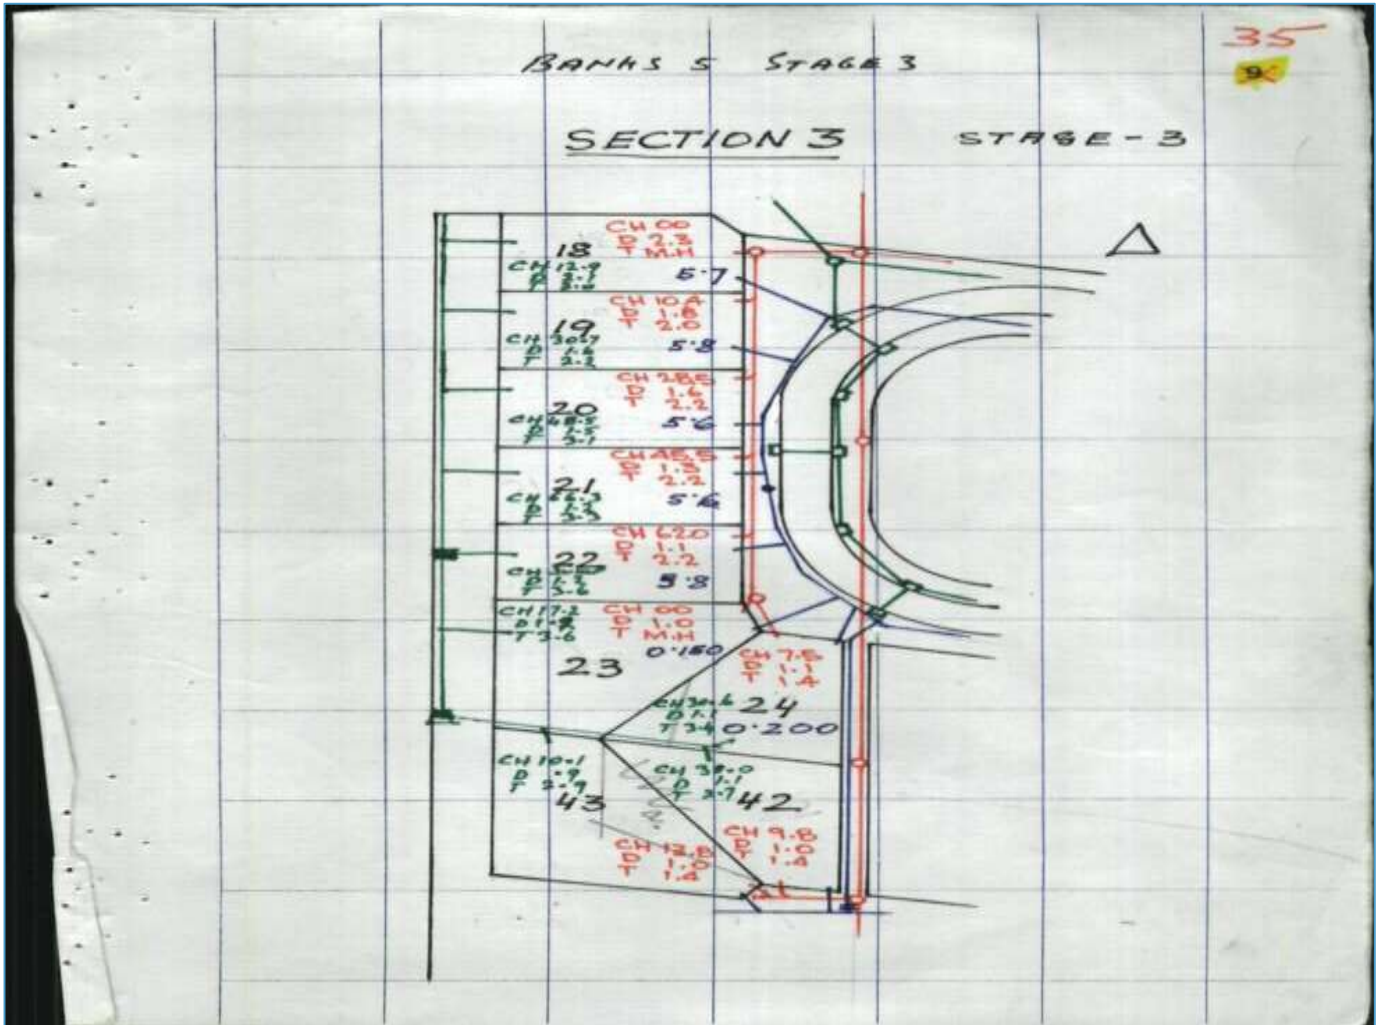 35
9
BANKS 5 STAGE 3
SECTION 3 STAGE-3
CH 00
D 2.3
T M.H
18
CH 12.9
D 2.1
T 2.0
5.7
CH 10.4
D 1.8
T 2.0
19
CH 30.7
D 1.6
T 2.2
5.8
CH 28.5
D 1.6
T 2.2
20
CH 48.5
D 1.5
T 3.1
5.6
CH 45.5
D 1.3
T 2.2
21
CH 66.3
T 3.3
5.6
CH 62.0
D 1.1
T 2.2
22
D 1.2
T 3.6
5.8
CH 17.2
T 3.6
CH 00
D 1.0
T M.H
23
0.150
CH 7.5
D 1.1
T 1.4
24
CH 30.6
D 1.1
T 3.4
0.200
CH 10.1
D .9
T 2.9
43
D 1.1
T 2.7
42
CH 12.8
D 1.0
T 1.4
CH 9.8
D 1.0
T 1.4